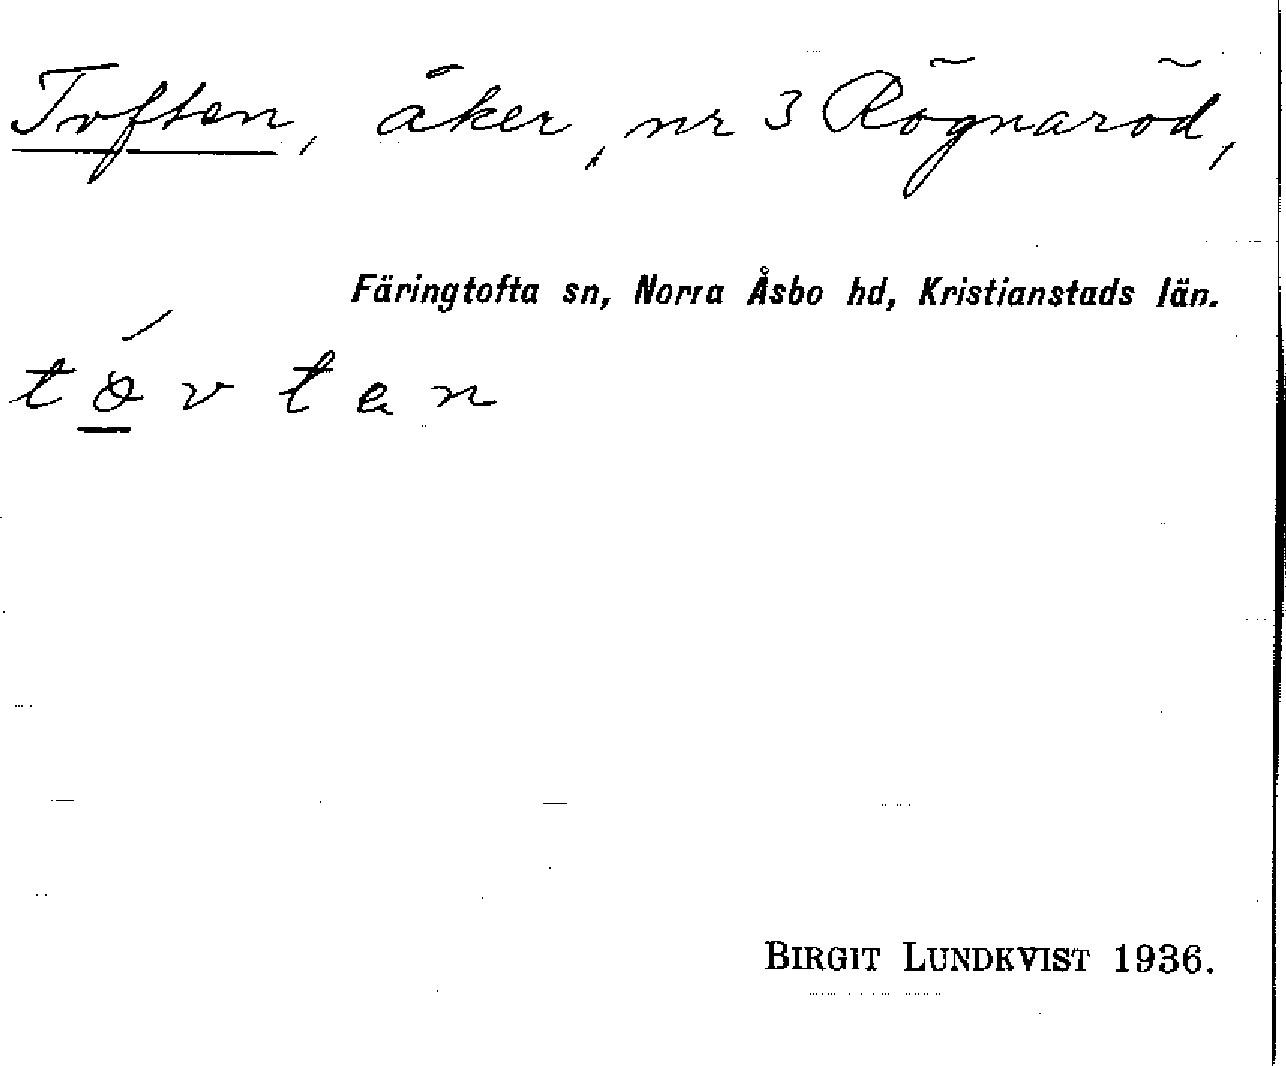 Toften, åker, nr 3 Rögnaröd,
Färingtofta sn, Norra Åsbo hd, Kristianstads län.
tǿvtan
BIRGIT LUNDKVIST 1936.